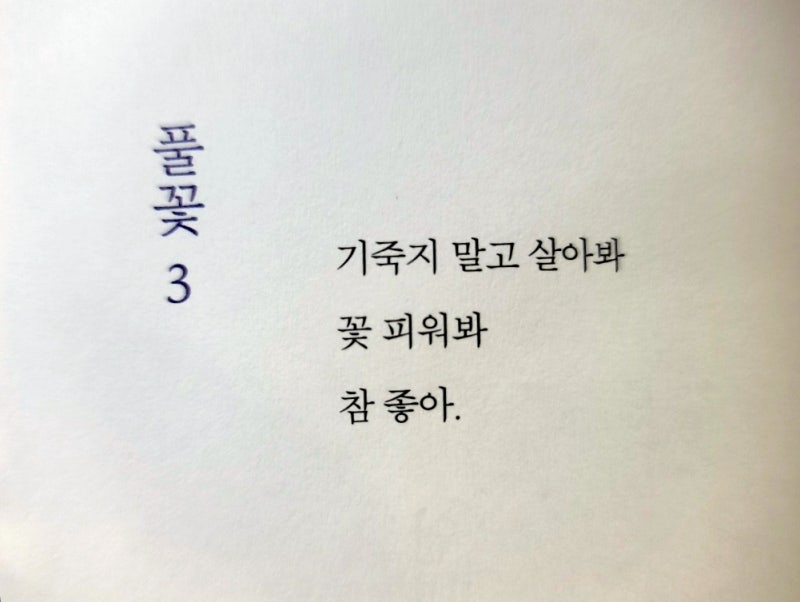 풀꽃 3
기죽지 말고 살아봐
꽃 피워봐
참 좋아.